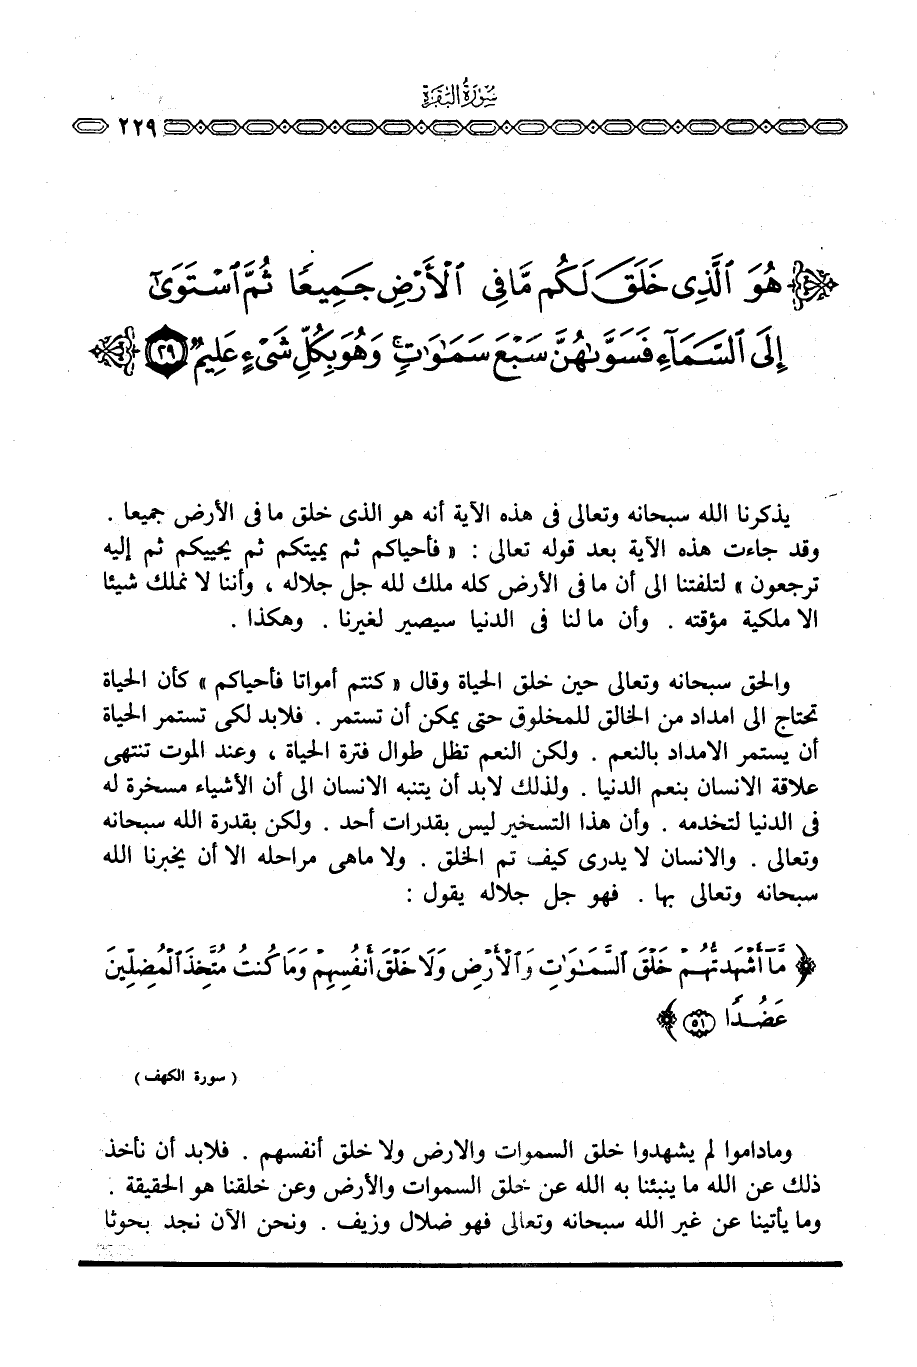 سُورَةُ البَقَرَة
٢٢٩
هُوَ ٱلَّذِى خَلَقَ لَكُم مَّا فِى ٱلْأَرْضِ جَمِيعًا ثُمَّ ٱسْتَوَىٰٓ
إِلَى ٱلسَّمَآءِ فَسَوَّىٰهُنَّ سَبْعَ سَمَٰوَٰتٍۚ وَهُوَ بِكُلِّ شَىْءٍ عَلِيمٌ ٢٩
يذكرنا الله سبحانه وتعالى فى هذه الآية أنه هو الذى خلق ما فى الأرض جميعا .
وقد جاءت هذه الآية بعد قوله تعالى : « فأحياكم ثم يميتكم ثم يحييكم ثم إليه
ترجعون » لتلفتنا الى أن ما فى الأرض كله ملك لله جل جلاله ، وأننا لا نملك شيئا
الا ملكية مؤقته . وأن ما لنا فى الدنيا سيصير لغيرنا . وهكذا .
والحق سبحانه وتعالى حين خلق الحياة وقال « كنتم أمواتا فأحياكم » كأن الحياة
تحتاج الى امداد من الخالق للمخلوق حتى يمكن أن تستمر . فلابد لكى تستمر الحياة
أن يستمر الامداد بالنعم . ولكن النعم تظل طوال فترة الحياة ، وعند الموت تنتهى
علاقة الانسان بنعم الدنيا . ولذلك لابد أن يتنبه الانسان الى أن الأشياء مسخرة له
فى الدنيا لتخدمه . وأن هذا التسخير ليس بقدرات أحد . ولكن بقدرة الله سبحانه
وتعالى . والانسان لا يدرى كيف تم الخلق . ولا ماهى مراحله الا أن يخبرنا الله
سبحانه وتعالى بها . فهو جل جلاله يقول :
﴿ مَّآ أَشْهَدتُّهُمْ خَلْقَ ٱلسَّمَٰوَٰتِ وَٱلْأَرْضِ وَلَا خَلْقَ أَنفُسِهِمْ وَمَا كُنتُ مُتَّخِذَ ٱلْمُضِلِّينَ
عَضُدًا ٥١ ﴾
( سورة الكهف )
وماداموا لم يشهدوا خلق السموات والارض ولا خلق أنفسهم . فلابد أن نأخذ
ذلك عن الله ما ينبئنا به الله عن خلق السموات والأرض وعن خلقنا هو الحقيقة .
وما يأتينا عن غير الله سبحانه وتعالى فهو ضلال وزيف . ونحن الآن نجد بحوثا